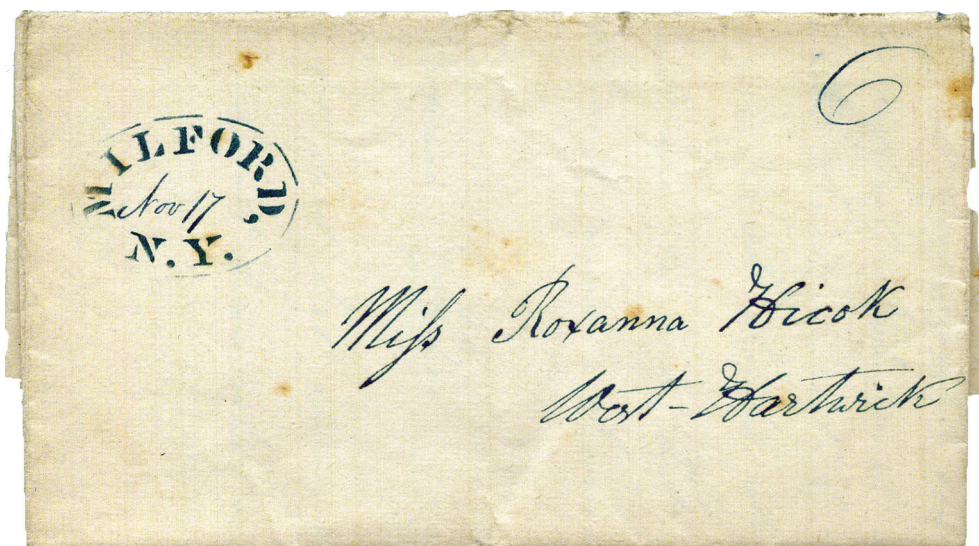 6
MILFORD,
Nov 17
N.Y.
Miſs Roxanna Hicok
West-Hartwick